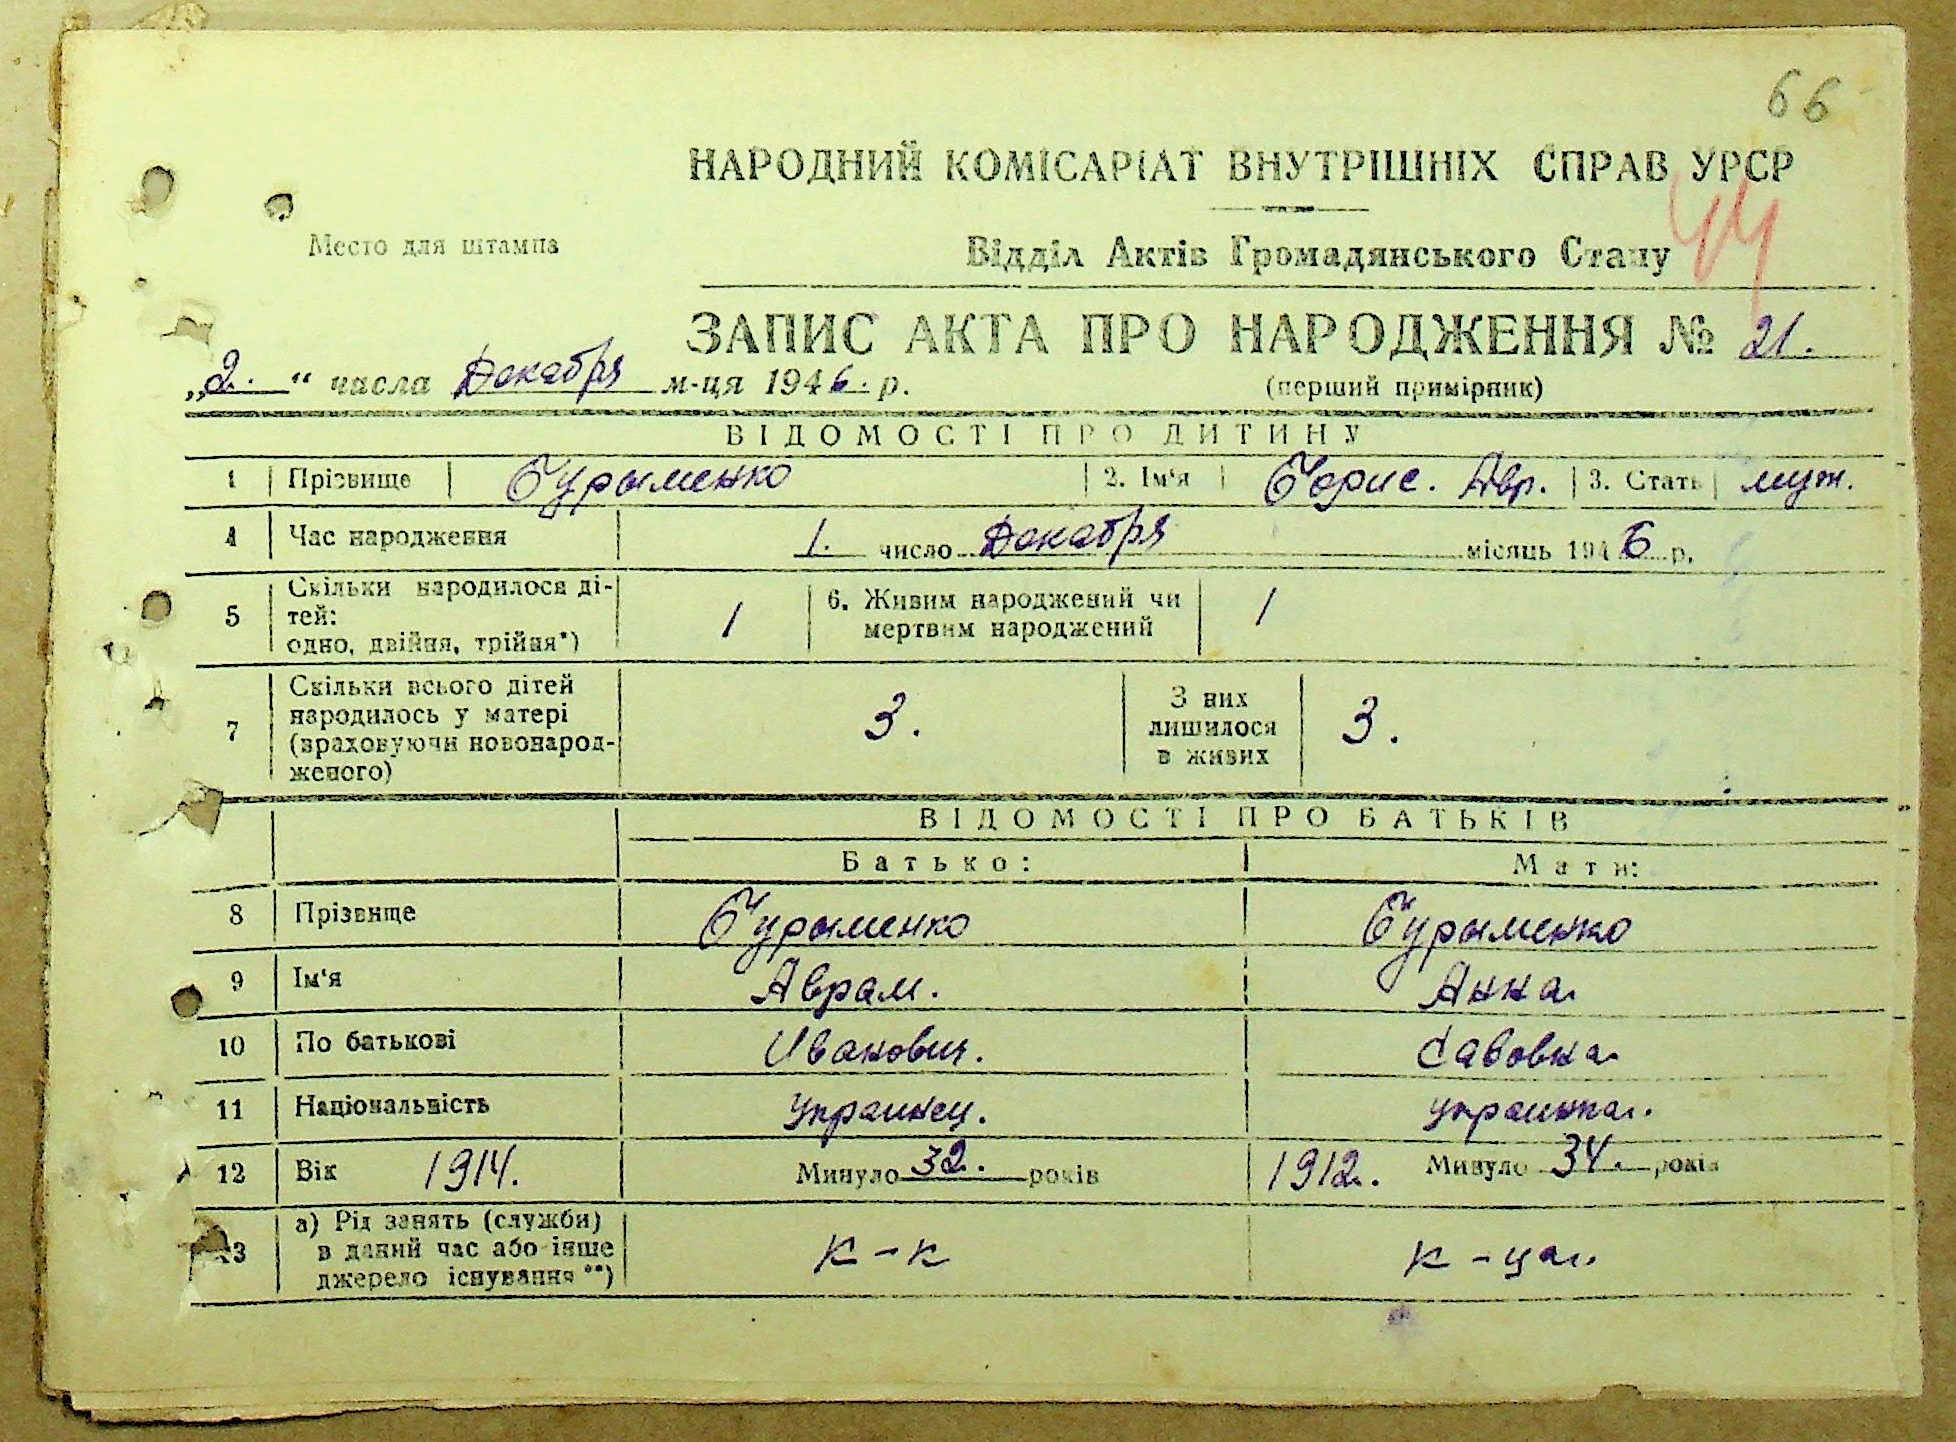 66
НАРОДНИЙ КОМІСАРІАТ ВНУТРІШНІХ СПРАВ УРСР
Место для штампа
Відділ Актів Громадянського Стану
44
ЗАПИС АКТА ПРО НАРОДЖЕННЯ № 21.
„2.“ числа Декабря м-ця 1946. р.
(перший примірник)
ВІДОМОСТІ ПРО ДИТИНУ
1 Прізвище Бурыменко 2. Ім'я Борис. Авр. 3. Стать муж.
4 Час народження 1. число Декабря місяць 1946 р.
5 Скільки народилося ді-
тей:
одно, двійня, трійня*) 1
6. Живим народжений чи
мертвим народжений 1
7 Скільки всього дітей
народилось у матері
(враховуючи новонарод-
женого) 3.
З них
лишилося
в живих 3.
ВІДОМОСТІ ПРО БАТЬКІВ
Батько: Мати:
8 Прізвище Бурыменко Бурыменко
9 Ім'я Аврам. Анна.
10 По батькові Иванович. Савовна.
11 Національність Украинец. Украинка.
12 Вік 1914. Минуло 32. років 1912. Минуло 34. років
13 а) Рід занять (служби)
в даний час або інше
джерело існування**) к-к к-ца.